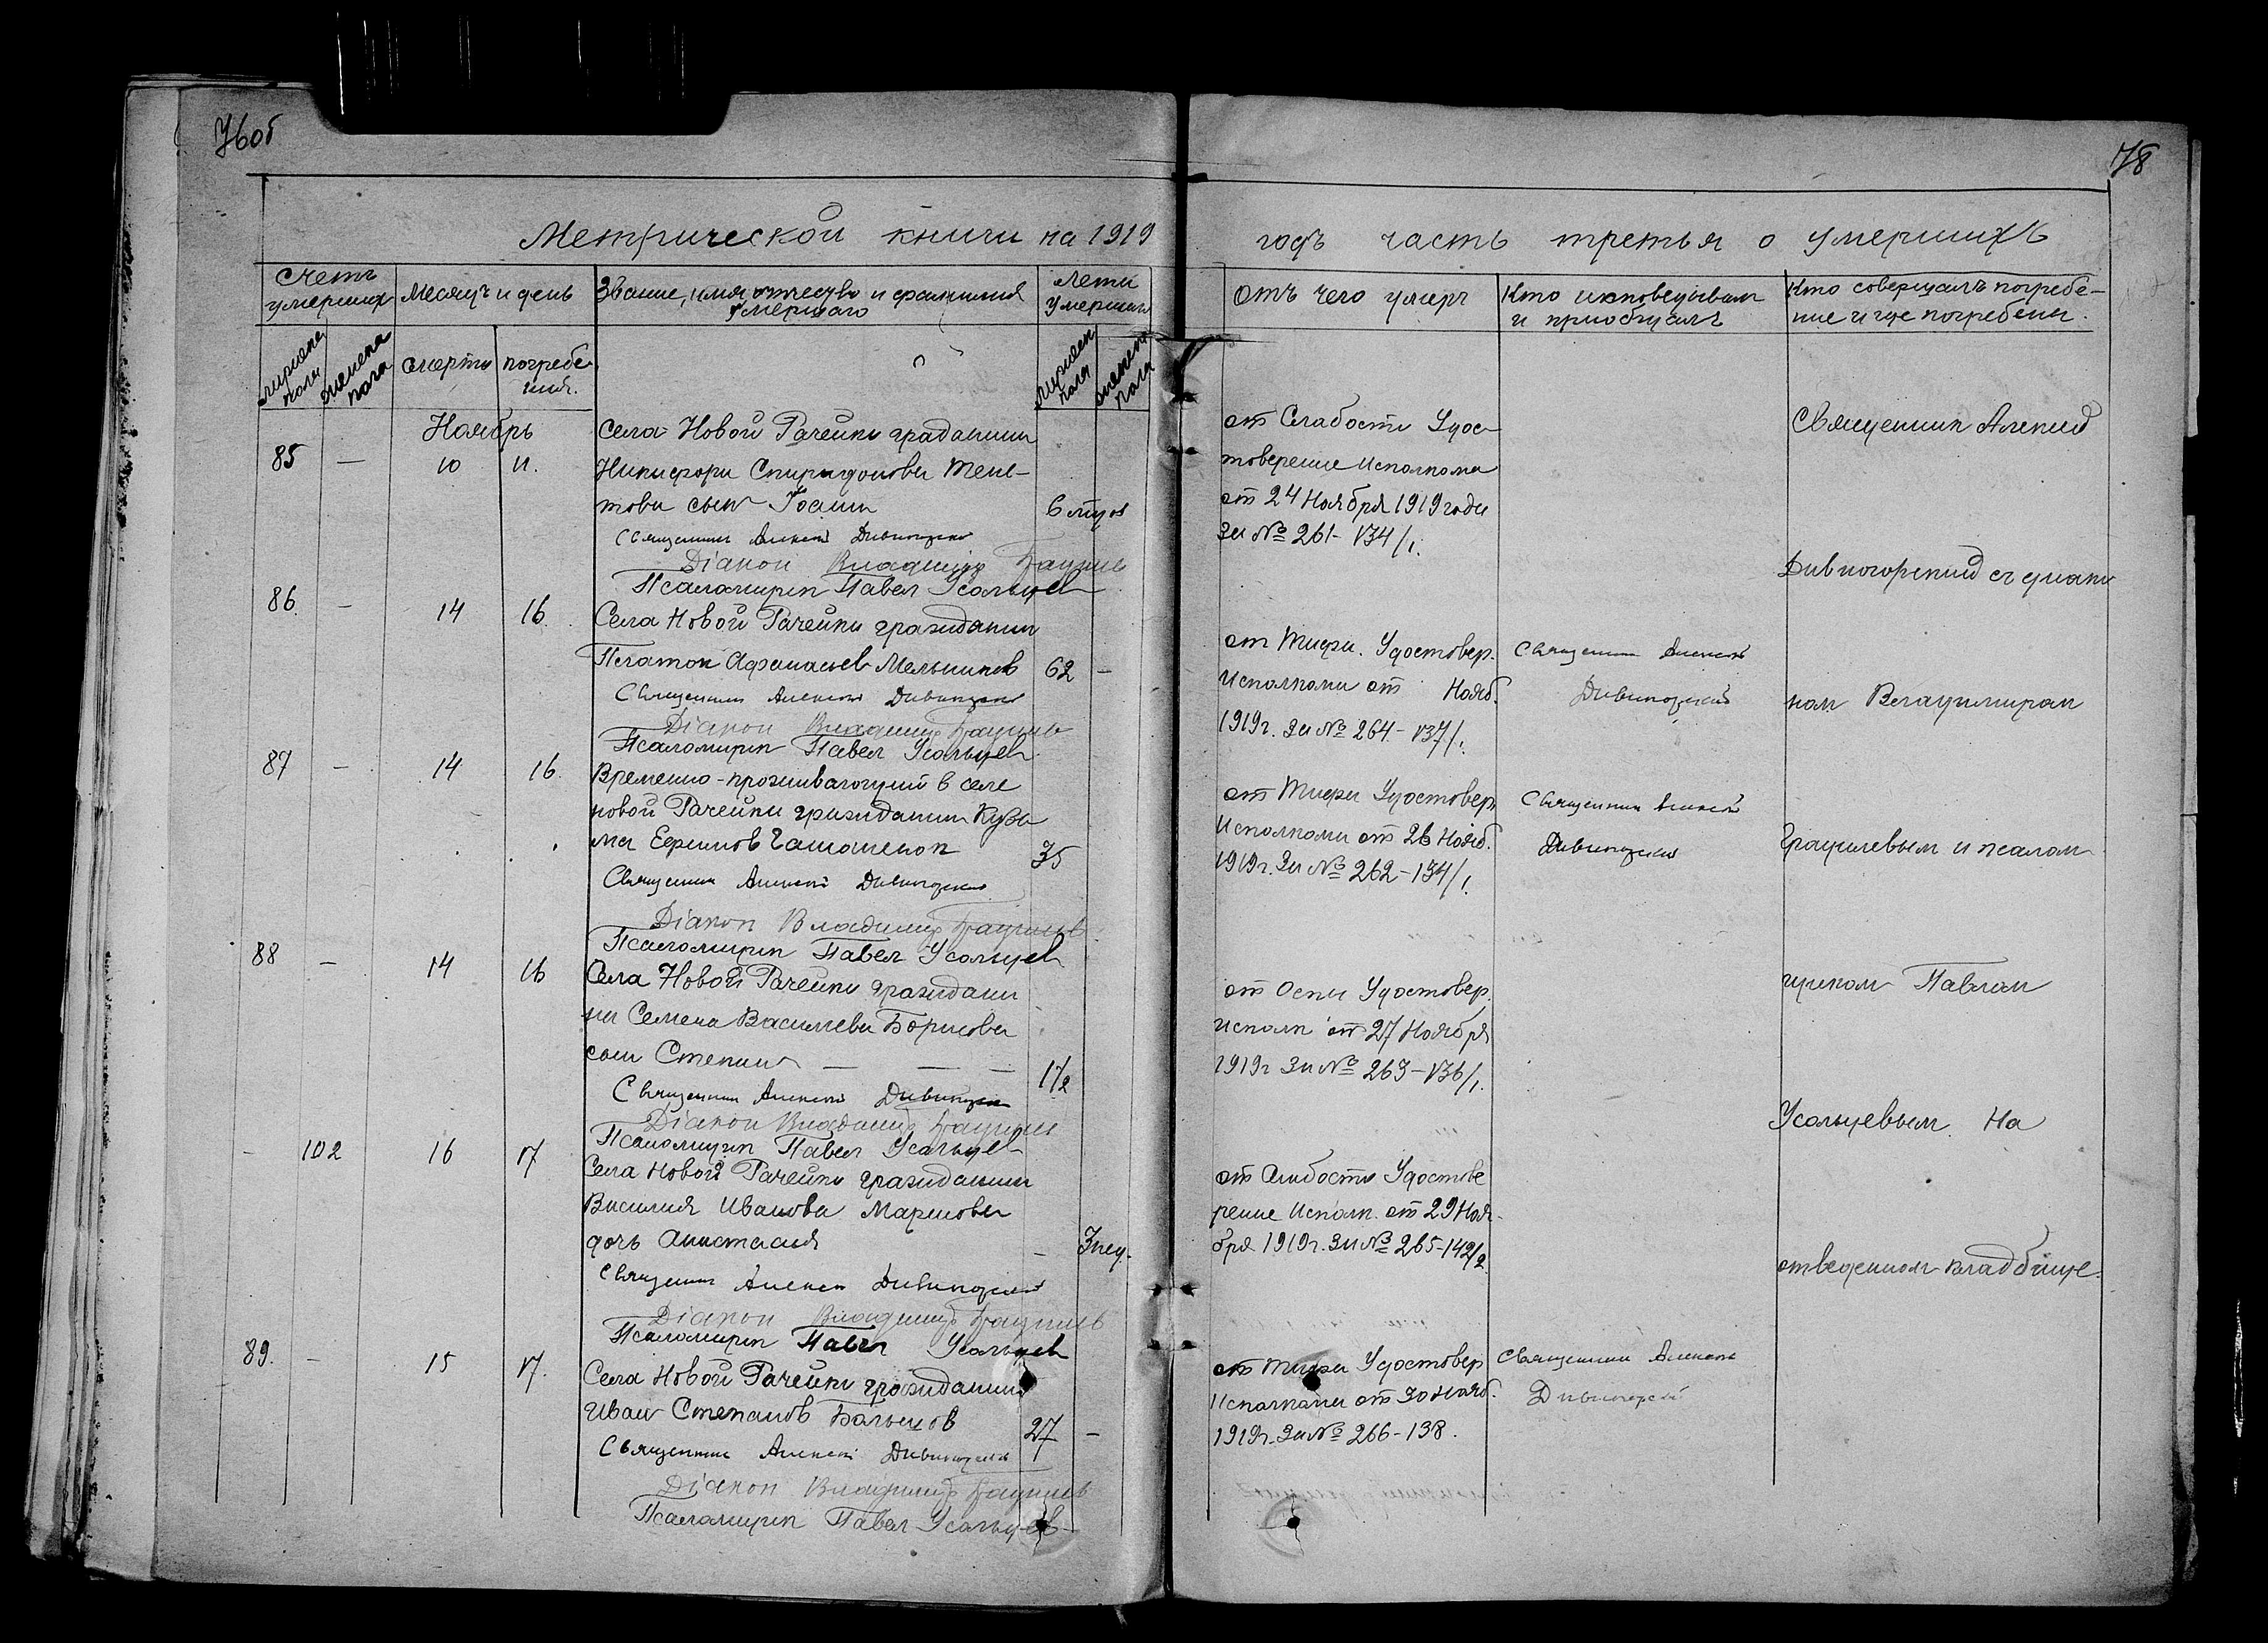 76об
78
Метрической книги на 1919
годъ часть третья о умершихъ
Счетъ умершихъ
Месяцъ и день
Звание, имя, отчество и фамилия умершаго
Лета умершаго
Отъ чего умеръ
Кто исповедывалъ и приобщалъ
Кто совершалъ погребе-
ние и где погребены.
мужска пола
женска пола
смерти
погребе-
ния.
мужска пола
женска пола
Ноябрь
85 — 10 11.
Села Новой Рачейки гражданина
Никифора Спиридонова
това сын Иоанн
6 мцов
Священник Алексей Дивногорский
Діакон Владимир
Псаломщик Павел Усольцев
от Слабости Удос-
товерение Исполкома
от 24 Ноября 1919 года
За № 261-134/1.
Священник Алексий
86. — 14 16.
Села Новой Рачейки гражданин
Платон Афанасьев Мельников
62 —
Священник Алексей Дивногорский
Діакон Владимир
Псаломщик Павел Усольцев
от Тифа. Удостовер.
Исполкома от Нояб.
1919г. За № 264-137/1.
Священник Алексей
Дивногорский
Дивногорский съ диако
87 — 14 16.
Временно-проживающий в селе
новой Рачейки гражданин Кузь
ма Ефимов
35
Священник Алексей Дивногорский
Діакон Владимир
Псаломщик Павел Усольцев
от Тифа Удостовер.
Исполкома от 26 Нояб.
1919г. За № 262-134/1.
Священник Алексей
Дивногорский
ном Владимиром
88 — 14 16
Села Новой Рачейки граждани
на Семена Василиева Борисова
сын Степан — — —
1 1/2
Священник Алексей Дивногорский
Діакон Владимир
Псаломщик Павел Усольцев
от Оспы Удостовер.
Исполк от 27 Ноября
1919г За № 263-136/1.
и псалом
щиком Павлом
- 102 16 17
Села Новой Рачейки гражданина
Василия Иванова Маркова
дочь Анастасия
— 3 нед.
Священник Алексей Дивногорский
Діакон Владимир
Псаломщик Павел Усольцев
от Слабости Удостове
рение Исполк. от 29 Ноя-
бря 1919г. За № 265-142/2.
Усольцевым. На
отведенном кладбище.
89. — 15 17.
Села Новой Рачейки гражданин
Иван Степанов
27 —
Священник Алексей Дивногорский
Діакон Владимир
Псаломщик Павел Усольцев
от тифа Удостовер
Исполкома от 30 Нояб.
1919г. За № 266-138.
Священник Алексей
Дивногорский